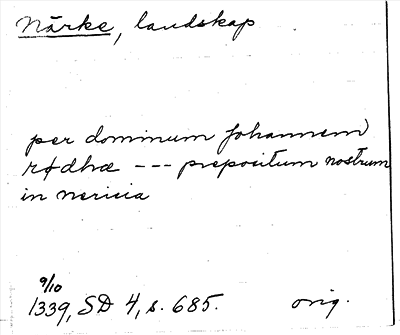 Närke, landskap
per dominum Johannem
rødhæ --- prepositum nostrum
in nericia
9/10
1339, SD 4, s. 685. orig.